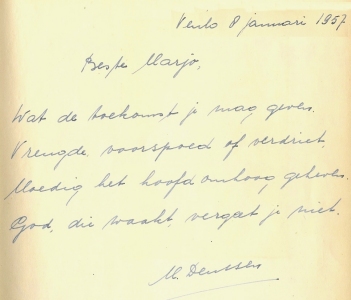 Venlo 8 januari 1957
Beste Marjo,
Wat de toekomst je mag geven.
Vreugde, voorspoed of verdriet,
Moedig het hoofd omhoog geheven.
God, die waakt, vergeet je niet.
M. Denssen